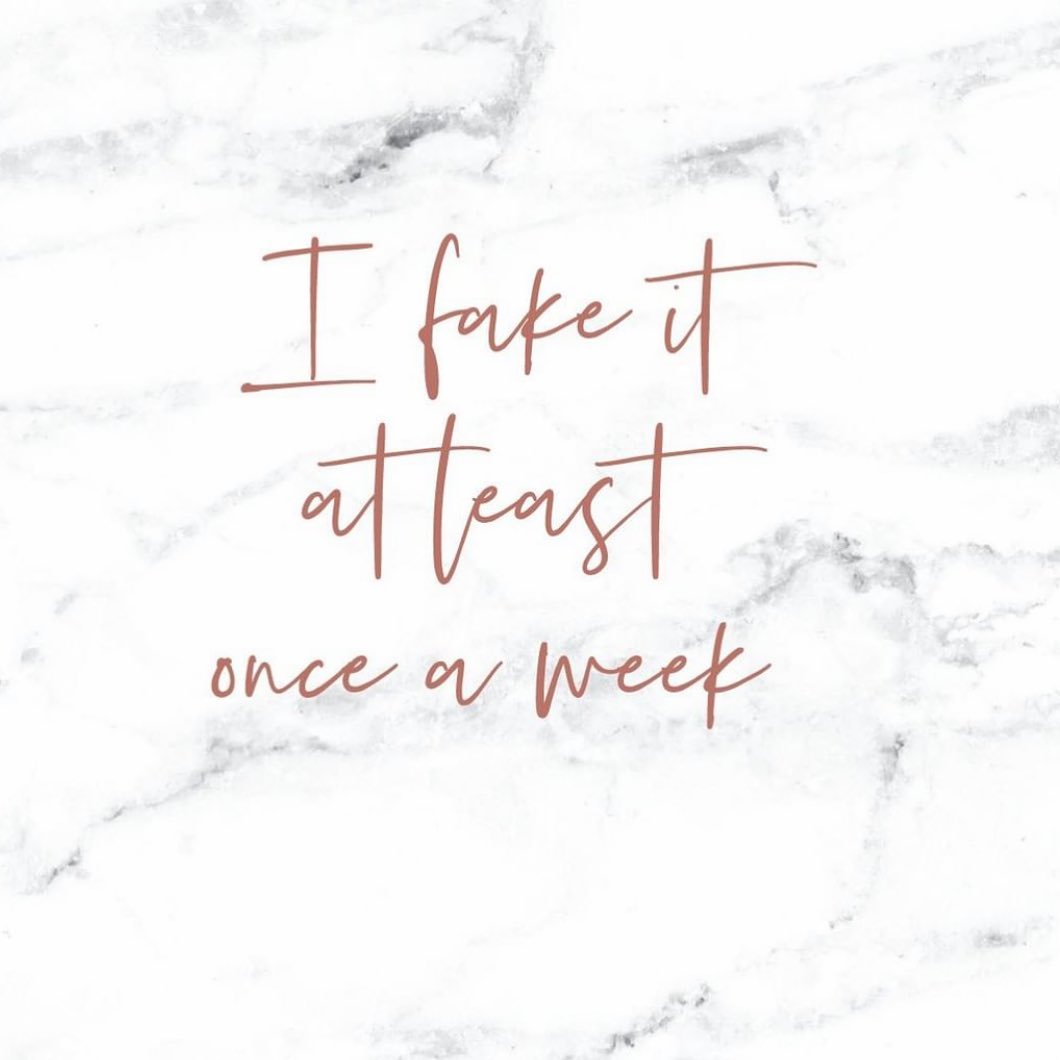 I fake it
at least
once a week